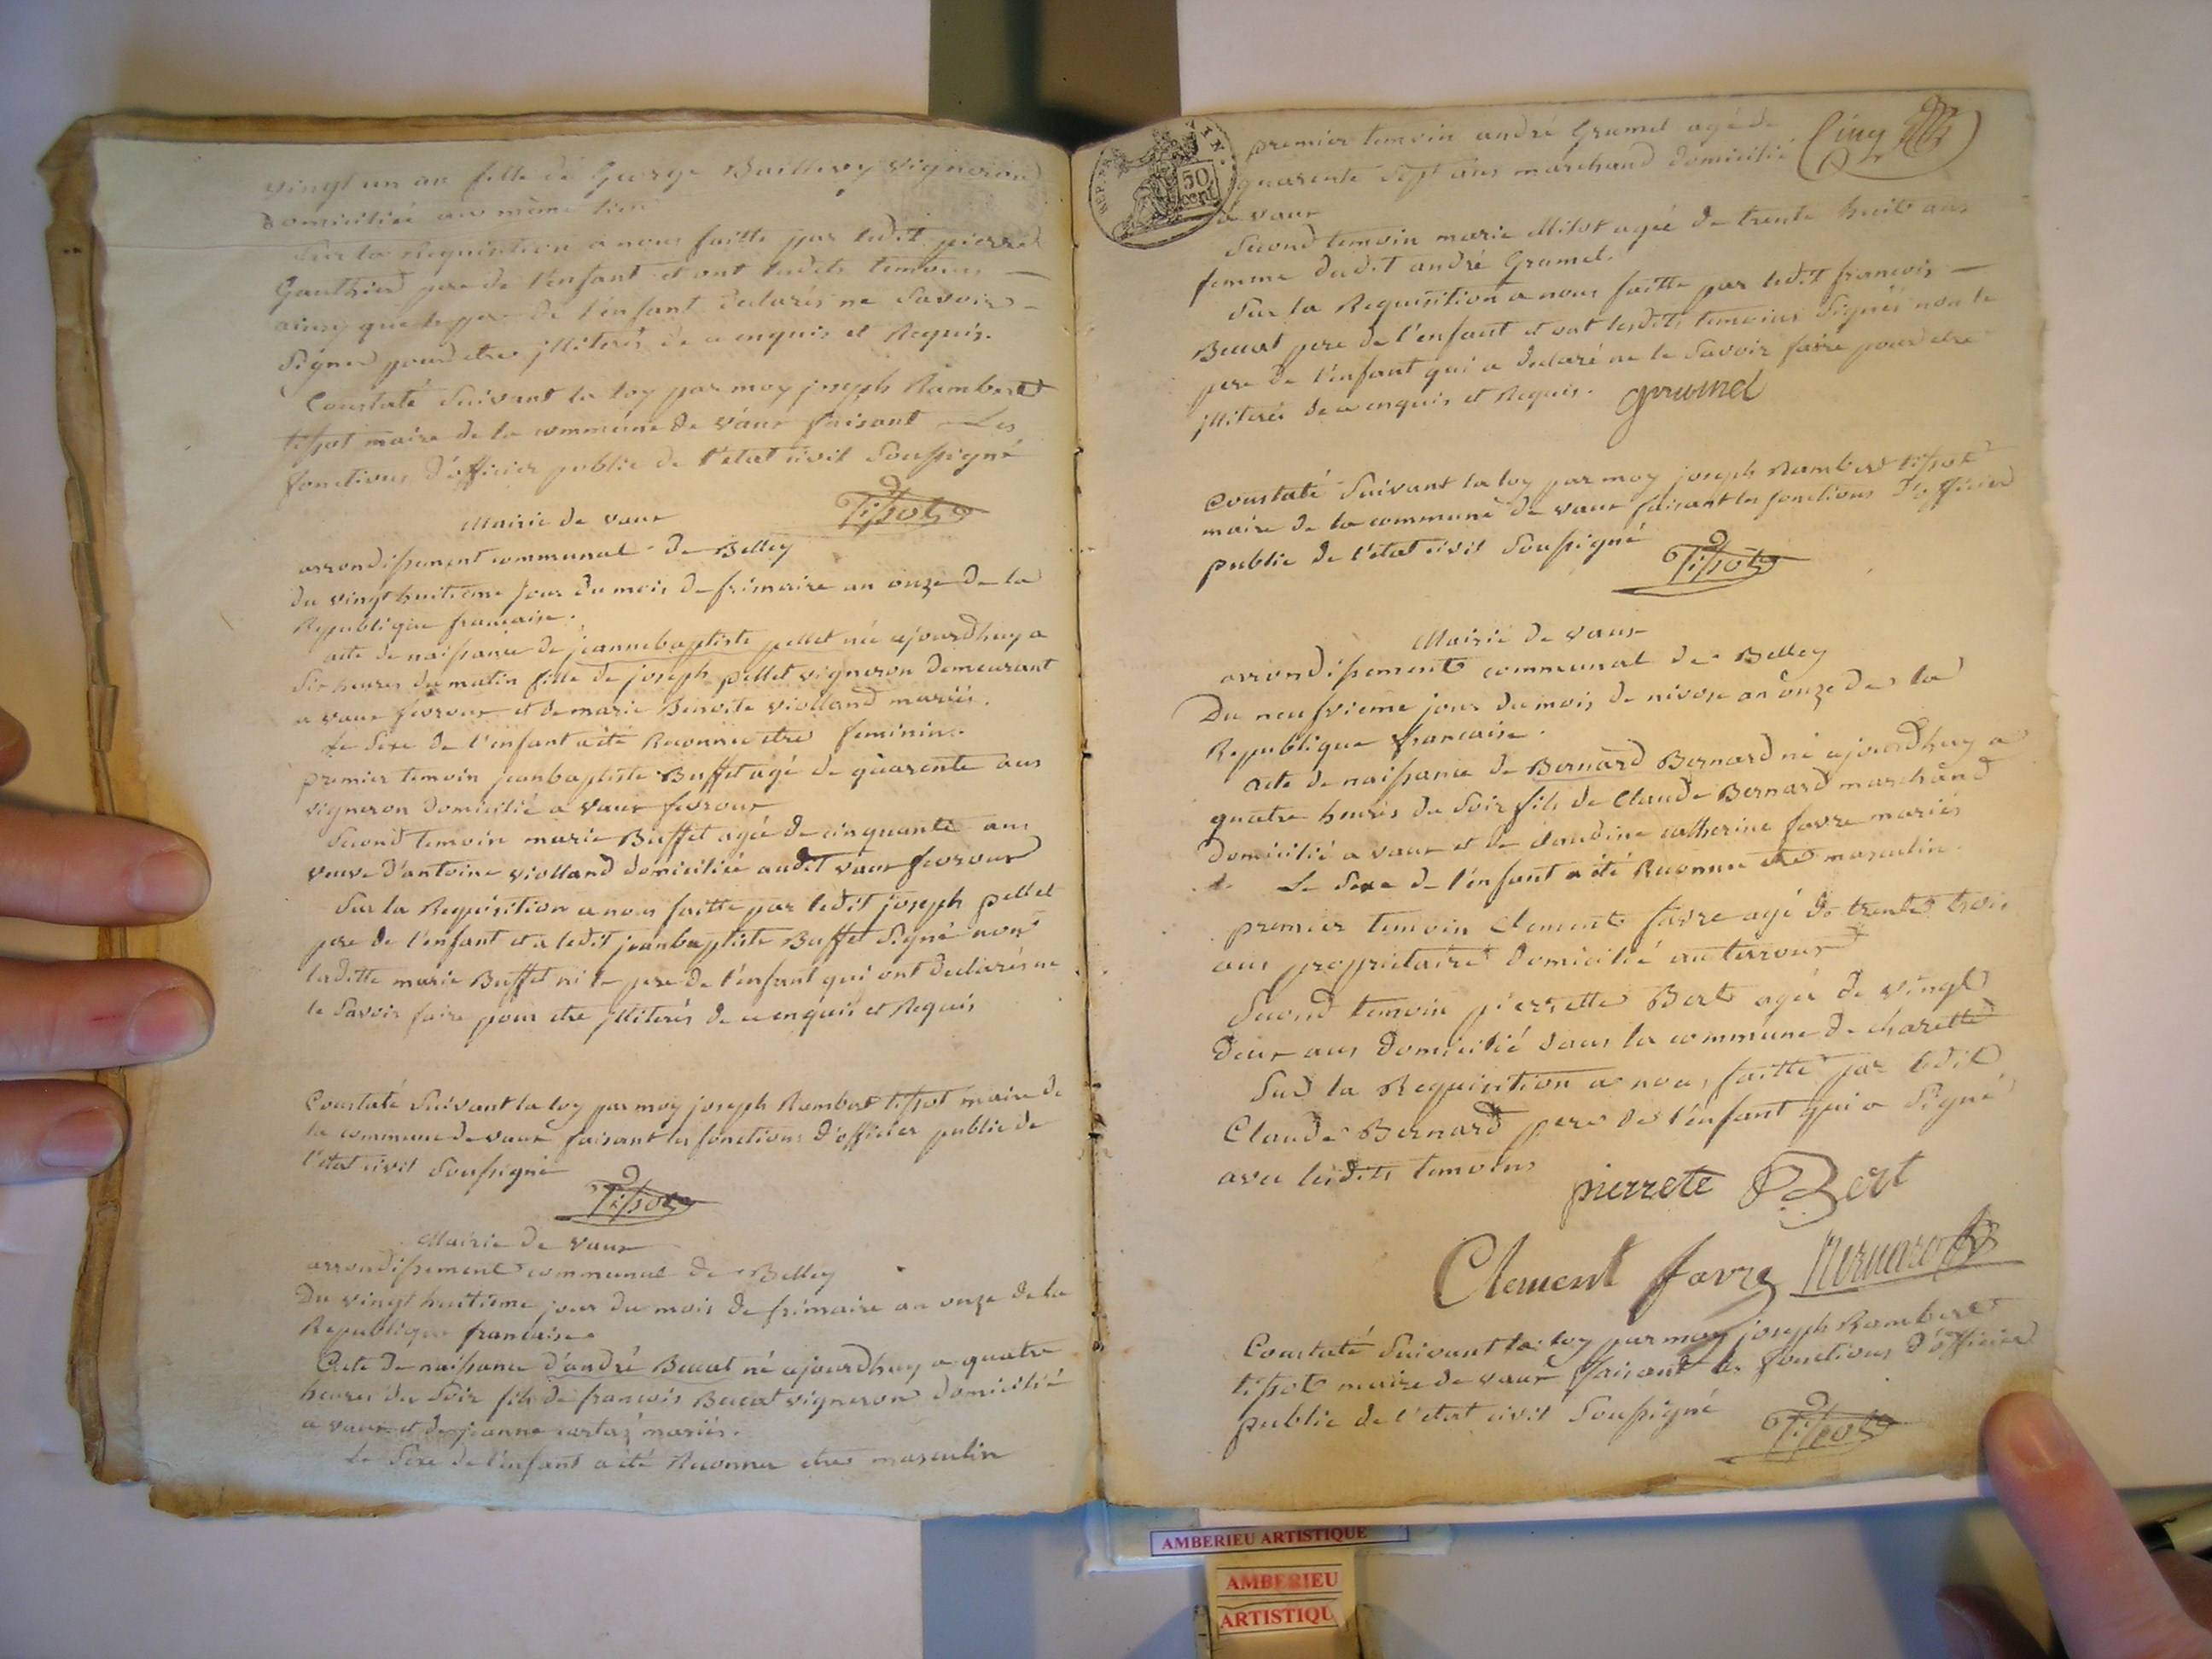 vingt un an fille de George Baillivy vigneron
domiciliée au même lieu
Sur la Requisition a nous faitte par ledit pierre
Gauthier pere de l'enfant et ont lesdits temoins —
ainsy que le pere de l'enfant declarés ne Savoir —
Signer pour etre jlliterés de ce enquis et Requis.
Constaté Suivant la loy par moy joseph Rambert
tissot maire de la commune de vaux faisant Les
fonctions d'officier public de l'etat civil Soussigné
Tissot
Mairie de vaux
arrondissement communal de Belley
du vingt huitieme jour du mois de frimaire an onze de la
Republique francaise.
acte de naissance de jeannebaptiste pellet née ajourdhuy a
Six heures du matin fille de joseph pellet vigneron demeurant
a vaux fevroux et de marie Benoite violland mariés.
Le Sexe de l'enfant a été Reconnu etre feminin.
premier temoin jeanbaptiste Buffet agé de quarente ans
vigneron domicilié a vaux fevroux
Second temoin marie Buffet agée de cinquante ans
veuve d'antoine violland domiciliée audit vaux fevroux
Sur la Requisition a nous faitte par ledit joseph pellet
pere de l'enfant et a ledit jeanbaptiste Buffet Signé non
laditte marie Buffet ni le pere de l'enfant qui ont declarés ne
le Savoir faire pour etre jlliterés de ce enquis et Requis
Constaté Suivant la loy par moy joseph Rambert tissot maire de
la commune de vaux faisant les fonctions d'officier public de
l'etat civil Soussigné
Tissot
Mairie de vaux
arrondissement communal de Belley
Du vingt huitieme jour du mois de frimaire an onze de la
Republique francaise
Acte de naissance d'andré Beccat né ajourdhuy a quatre
heures du Soir fils de francois Beccat vigneron domicilié
a vaux et de jeanne cartaz mariés.
Le Sexe de l'enfant a été Reconnu etre masculin
REP.
50
cent
Cinq
premier temoin andré Grumel agé de
quarente Sept ans marchand domicilié
a vaux
Second temoin marie Milot agée de trente huit ans
femme dudit andré Grumel.
Sur la Requisition a nous faitte par ledit francois —
Beccat pere de l'enfant et ont lesdits temoins Signés non le
pere de l'enfant qui a declaré ne le Savoir faire pour etre
jlliteré de ce enquis et Requis. grumel
Constaté Suivant la loy par moy joseph Rambert tissot
maire de la commune de vaux faisant les fonctions d'officier
public de l'etat civil Soussigné
Tissot
Mairie de vaux
arrondissement communal de Belley
Du neufvieme jour du mois de nivose an onze de la
Republique francaise.
acte de naissance de Bernard Bernard né ajourdhuy a
quatre heures du Soir fils de Claude Bernard marchand
domicilié a vaux et de claudine catherine favre mariés
Le Sexe de l'enfant a été Reconnu etre masculin.
premier temoin Clement favre agé de trente trois
ans proprietaire domicilié au terroux
Second temoin pierrette Bert agée de vingt
deux ans domicilié dans la commune de charette
Sur la Requisition a nous faitte par ledit
Claude Bernard pere de l'enfant qui a Signé
avec lesdits temoins
pierrete Bert
Clement favre Bernard
Constaté Suivant la loy par moy joseph Rambert
tissot maire de vaux faisant les fonctions d'officier
public de l'etat civil Soussigné
Tissot
AMBERIEU ARTISTIQUE
AMBERIEU
ARTISTIQU